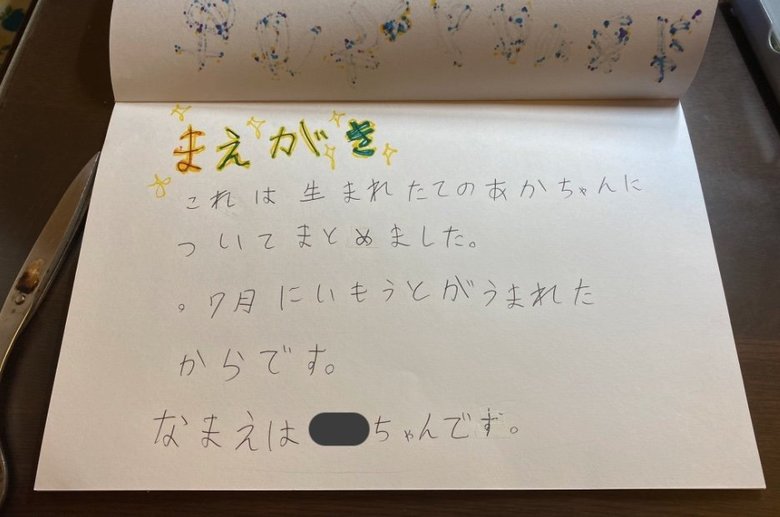 まえがき
これは生まれたてのあかちゃんに
ついてまとめました。
。7月にいもうとがうまれた
からです。
なまえは ちゃんです。